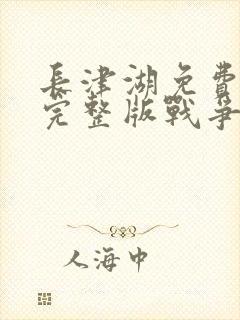 長津湖免費
完整版戰爭
人海中